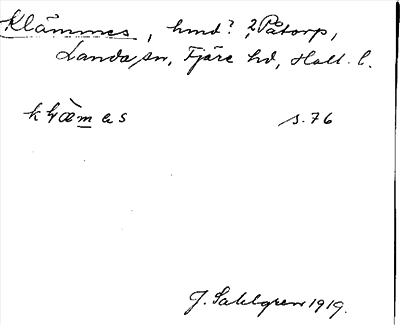 Klämmes, hmd? 2 Påtorp,
Landa sn, Fjäre hd, Hall. l.
klæ̀mas s. 76
J. Sahlgren 1919.